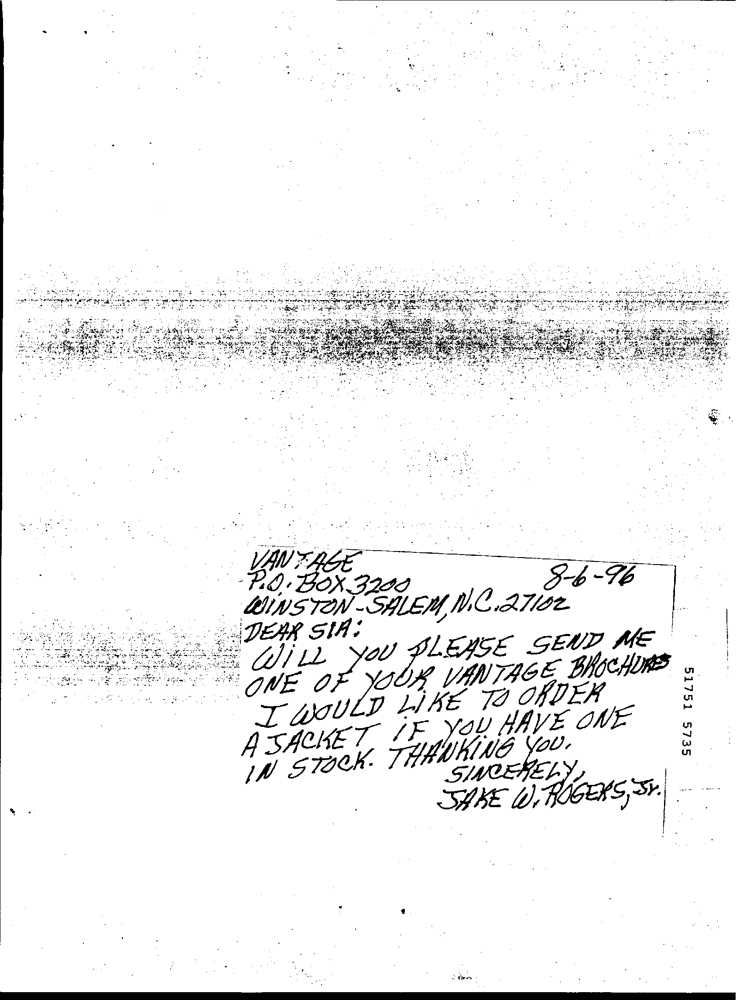 VANTAGE
P.O. BOX 3200
8-6-96
WINSTON-SALEM, N.C. 27102
DEAR SIR:
WILL YOU PLEASE SEND ME
ONE OF YOUR VANTAGE BROCHURES
I WOULD LIKE TO ORDER
A JACKET IF YOU HAVE ONE
IN STOCK. THANKING YOU.
SINCERELY,
JAKE W. ROGERS, Jr.
51751 5735